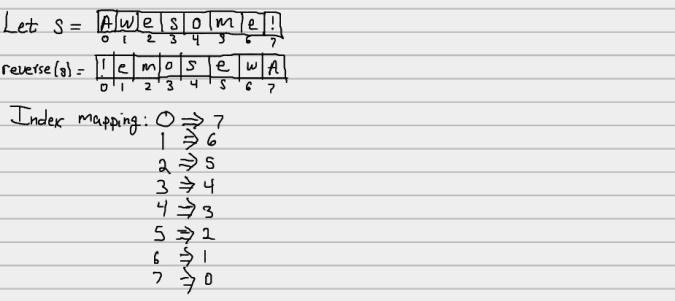 Let S = A w e s o m e !
0 1 2 3 4 5 6 7
reverse(s) = ! e m o s e w A
0 1 2 3 4 5 6 7
Index mapping: 0 ⇒ 7
1 ⇒ 6
2 ⇒ 5
3 ⇒ 4
4 ⇒ 3
5 ⇒ 2
6 ⇒ 1
7 ⇒ 0